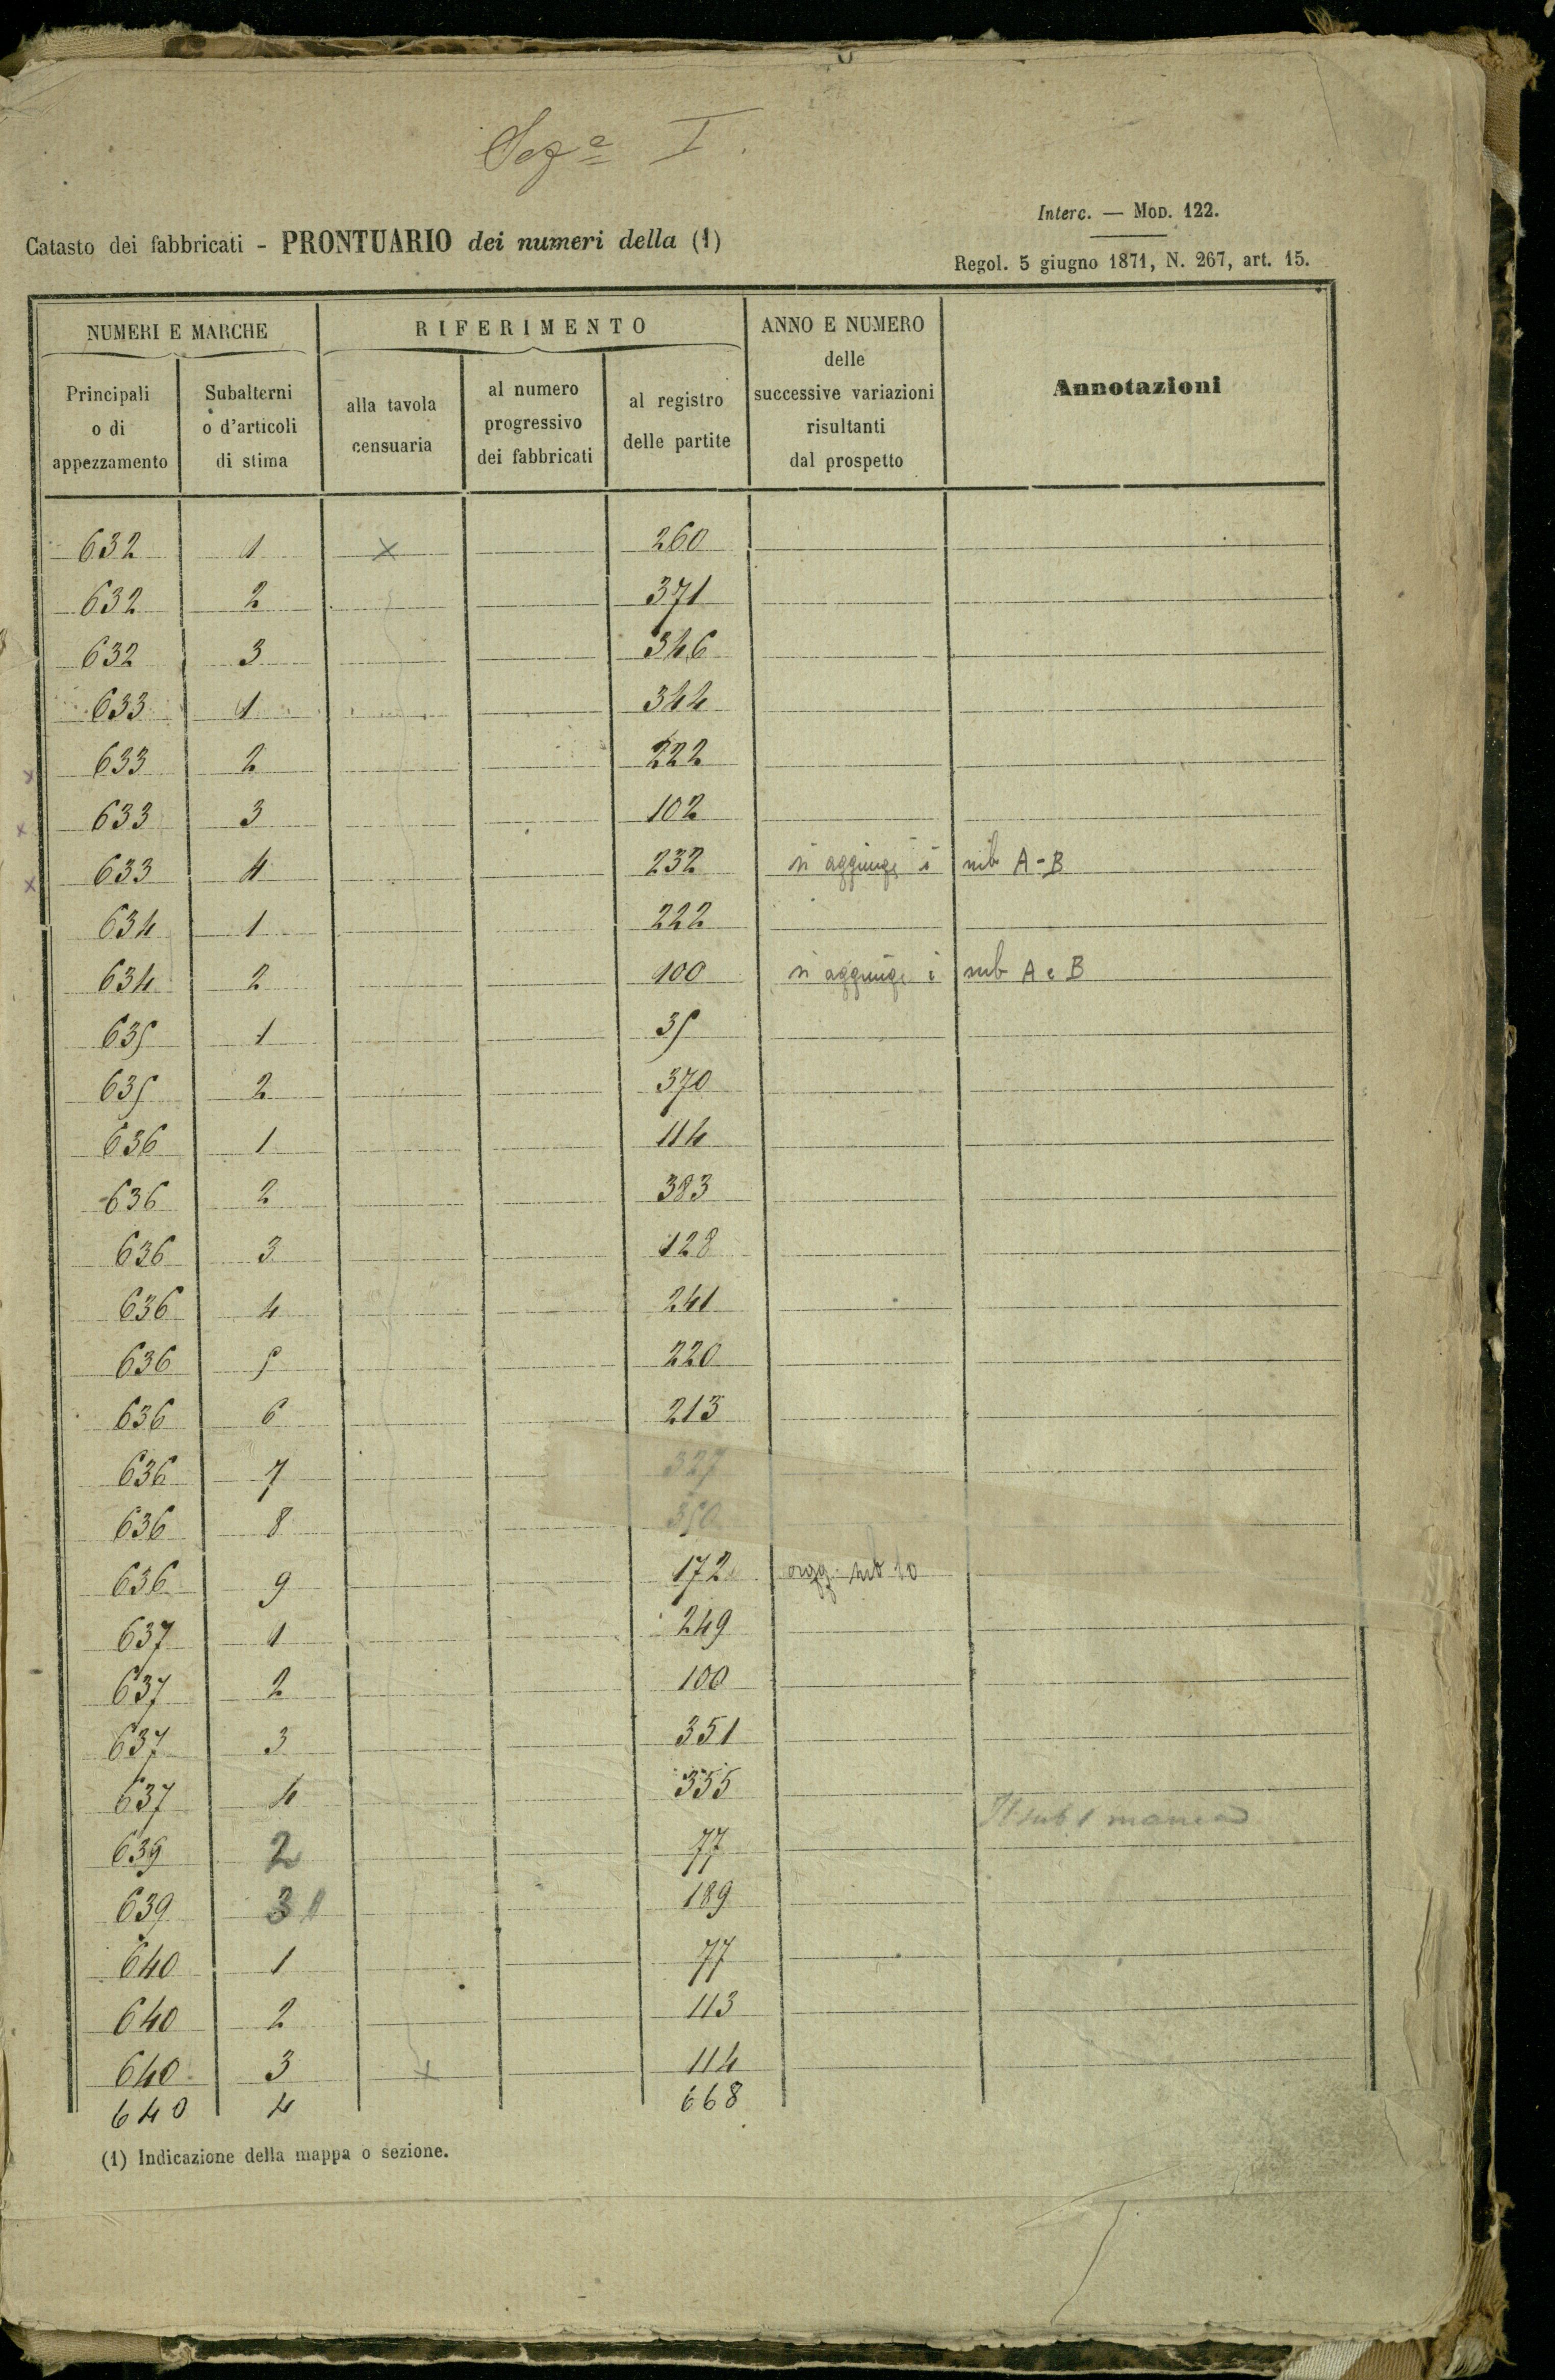 Sez.e I.
Interc. — MOD. 122.
Catasto dei fabbricati - PRONTUARIO dei numeri della (1)
Regol. 5 giugno 1871, N. 267, art. 15.
NUMERI E MARCHE
RIFERIMENTO
ANNO E NUMERO
delle
successive variazioni
risultanti
dal prospetto
Annotazioni
Principali
o di
appezzamento
Subalterni
o d'articoli
di stima
alla tavola
censuaria
al numero
progressivo
dei fabbricati
al registro
delle partite
632 1 x 260
632 2 371
632 3 346
633 1 344
x 633 2 222
x 633 3 102
x 633 4 232 si aggiunge i sub A-B
634 1 222
634 2 100 si aggiunge i sub A e B
635 1 35
635 2 370
636 1 114
636 2 383
636 3 128
636 4 241
636 5 220
636 6 213
636 7 327
636 8 350
636 9 172 agg. sub 10
637 1 249
637 2 100
637 3 351
637 4 355
Il sub 1 manca
639 2 77
639 3 189
640 1 77
640 2 113
640 3 x 114
640 4 668
(1) Indicazione della mappa o sezione.